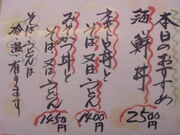 本日のおすすめ
海鮮丼
2500
本日の丼と
そば又はうどん
1400円
ミニかつ丼と
そば又はうどん
1450円
そば・うどんは
冷・温有ります